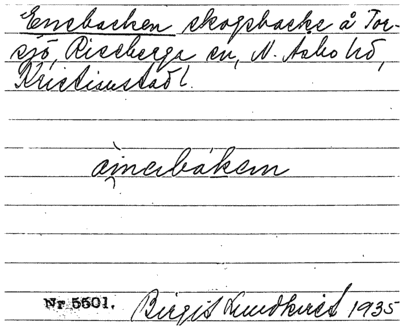 Enebacken skogsbacke å Tor-
sjö, Riseberga sn, N. Åsbo hd,
Kristianstad l.
Nr 5501. Birgit Lundkvist 1935